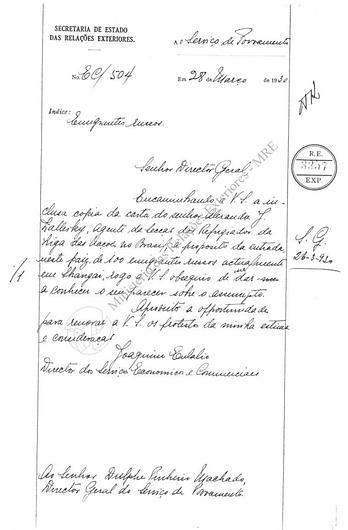 SECRETARIA DE ESTADO
DAS RELAÇÕES EXTERIORES.
Ao Serviço de Povoamento
No. EC/504
Em 28 de Março de 1930
Indice:
Emigrantes russos.
R.E.
3357
EXP.
Senhor Director Geral,
Encaminhando a V.S. a in-
clusa copia da carta do senhor
Agente da Secção dos Refugiados da
Liga das Nações no Brasil, a proposito da entrada,
neste paiz, de 200 emigrantes russos actualmente
em Shangai, rogo a V.S. o obsequio de me dar
a conhecer o seu parecer sobre o assumpto.
Aproveito a opportunidade
para renovar a V.S. os protestos da minha estima
e consideração.
Joaquim Eulalio
Director dos Serviços Economicos e Commerciaes
S. G.
/1
Ao Senhor Dulphe Pinheiro Machado,
Director Geral do Serviço de Povoamento
Ministério das Relações Exteriores - MRE